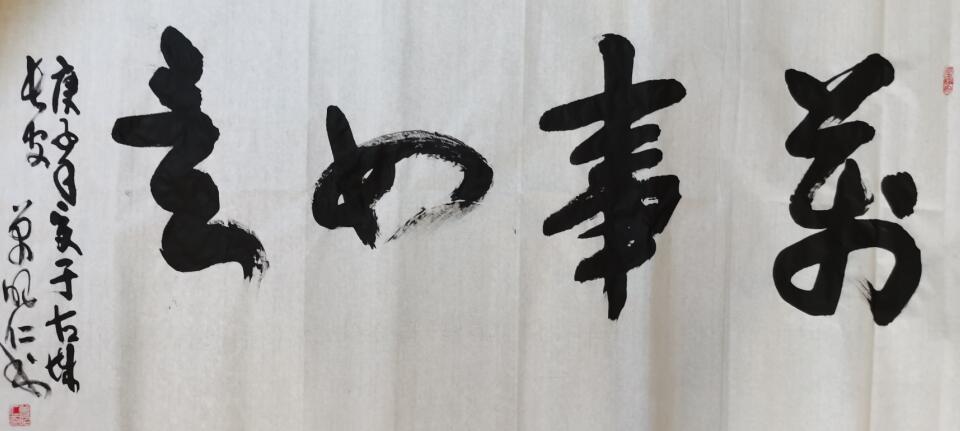 萬事如意
庚子年夏于古城
长安 萬鴻仁书